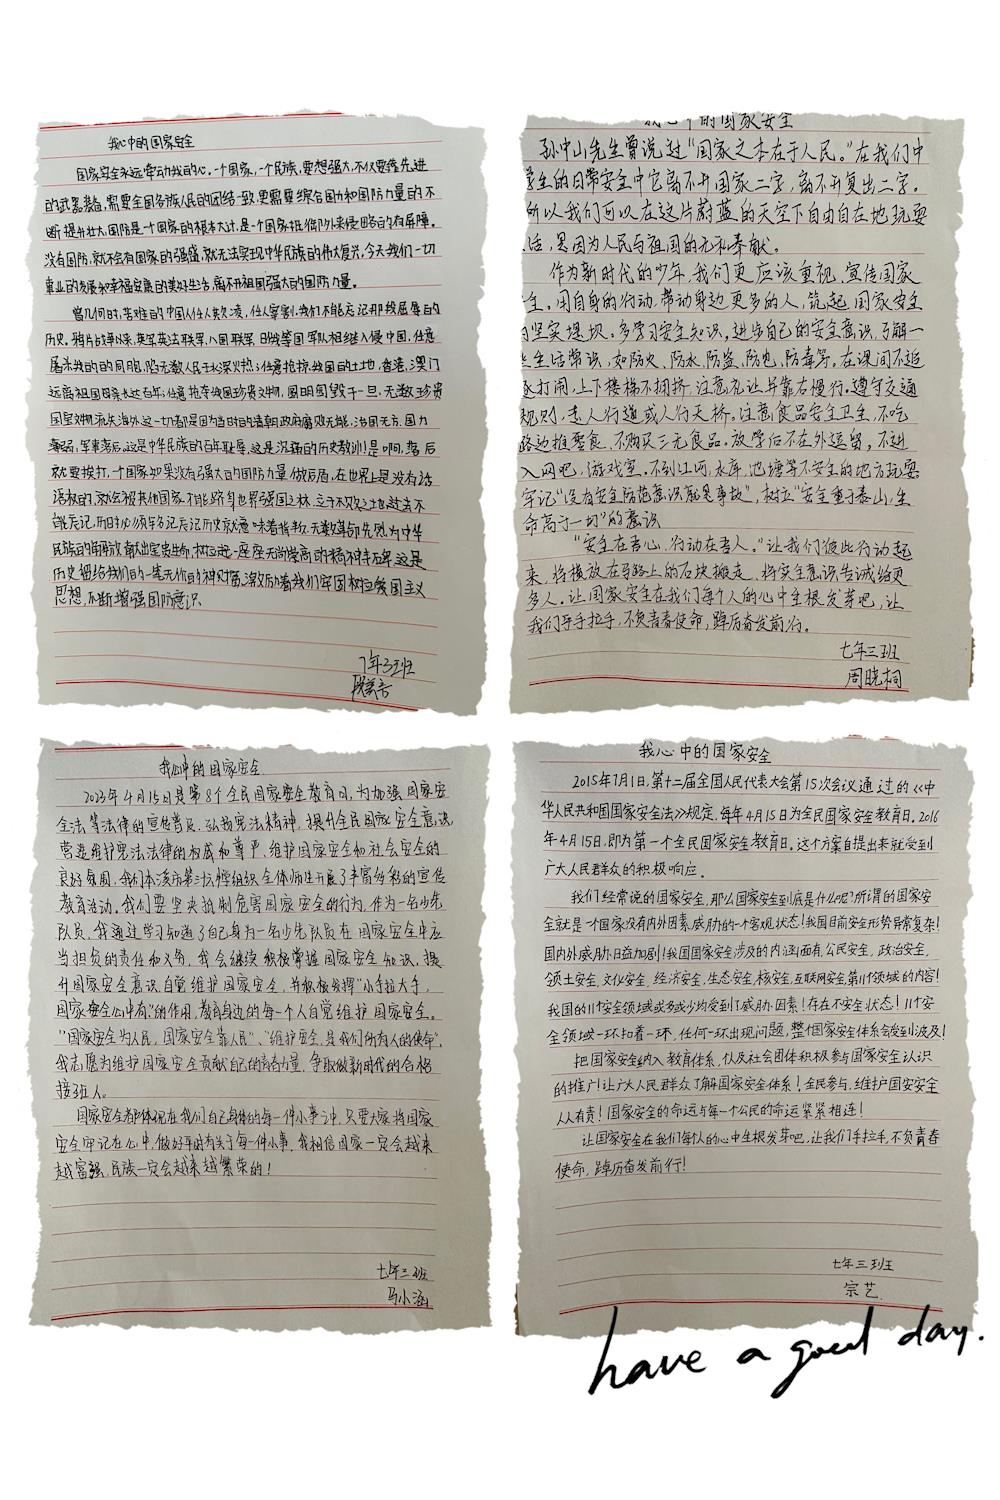 我心中的国家安全
国家安全永远牵动我的心。一个国家,一个民族,要想强大,不仅要靠先进
的武器装备,需要全国各族人民的团结一致,更需要综合国力和国防力量的不
断提升壮大,国防是一个国家的根本大计,是一个国家抵御外来侵略的有屏障。
没有国防,就不会有国家的强盛,就无法实现中华民族的伟大复兴,今天我们一切
事业的发展和幸福安康的美好生活,离不开祖国强大的国防力量。
曾几何时,苦难的中国人任人欺凌,任人宰割,我们不能忘记那段屈辱的
历史。鸦片战争以来,英军英法联军,八国联军,日俄等国军队相继入侵中国,任意
屠杀我的的同胞,陷无数人民于水深火热;任意抢掠我国的土地,香港,澳门
远离祖国母亲长达百年;任意抢夺我国珍贵文物,圆明园毁于一旦,无数珍贵
国宝文物流失海外这一切都是因为当时的清朝政府腐败无能,治国无方,国力
衰弱,军事落后,这是中华民族的百年耻辱,这是沉痛的历史教训!是啊,落后
就要挨打,一个国家如果没有强大的国防力量做后盾,在世界上是没有话
语权的,就会被其他国家
能忘记,历史必须牢记忘记历史就意味着背叛,无数革命先烈为中华
民族的解放献出宝贵生命,树立起一座座无尚崇高的精神丰碑,这是
历史留给我们的一笔无价的神财富,激励着我们牢固树立爱国主义
思想,不断增强国防意识
7年3班
我心中的国家安全
孙中山先生曾说过“国家之本在于人民。”在我们中
学生的日常安全中它离不开国家二字,离不开复出二字。
所以我们可以在这片蔚蓝的天空下自由自在地玩耍
活,是因为人民与祖国的无私奉献。
作为新时代的少年,我们更应该重视,宣传国家
全。用自身的行动,带动身边更多的人,筑起国家安全
的坚实堤坝。多学习安全知识,进步自己的安全意识,了解一
些生活常识,如防火、防水、防盗、防电、防毒等。在课间不追
逐打闹,上下楼梯不拥挤,注意礼让并靠右慢行。遵守交通
规则,走人行道或人行天桥。注意食品安全卫生,不吃
路边摊零食、不购买三无食品。放学后不在外逗留,不进
入网吧,游戏室。不到江河、水库、池塘等不安全的地方玩耍。
牢记“没有安全防范意识就是事故”,树立“安全重于泰山,生
命高于一切”的意识
“安全在吾心,行动在吾人。”让我们彼此行动起
来,将横放在马路上的石块搬走,将安全意识告诫给更
多人。让国家安全在我们每个人的心中生根发芽吧,让
我们手手拉手,不负青春使命,踔厉奋发前行。
七年三班
周晓桐
我心中的国家安全
2023年4月15日是第8个全民国家安全教育日,为加强国家安
全法等法律的宣传普及,弘扬宪法精神,提升全民国家安全意识,
营造维护宪法法律的权威和尊严,维护国家安全和社会安全的
良好氛围,我们本溪市第三实验组织全体师生开展了丰富多彩的宣传
教育活动。我们要坚决抵制危害国家安全的行为,作为一名少先
队员,我通过学习知道了自己身为一名少先队员在国家安全中应
当担负的责任和义务,我会继续积极掌握国家安全知识,提
升国家安全意识自觉维护国家安全,并积极发挥“小手拉大手,
国家安全心中有”的作用,教育身边的每一个人自觉维护国家安全。
“国家安全为人民,国家安全靠人民”、“维护安全是我们所为人的使命”,
我志愿为维护国家安全贡献自己的青春力量,争取做新时代的合格
接班人。
国家安全都体现在我们自己身体的每一件小事之中,只要大家将国家
安全牢记在心中,做好平时有关于每一件小事,我相信国家一定会越来
越富强,民族一定会越来越繁荣的!
七年三班
马小涵
我心中的国家安全
2015年7月1日,第十二届全国人民代表大会第15次会议通过的《中
华人民共和国国家安全法》规定,每年4月15日为全民国家安全教育日。2016
年4月15日,即为第一个全民国家安全教育日。这个方案自提出来就受到
广大人民群众的积极响应。
我们经常说的国家安全,那么国家安全到底是什么呢?所谓的国家安
全就是一个国家没有内外因素威胁的一个客观状态!我国目前安全形势异常复杂!
国内外威胁日益加剧!我国国家安全涉及的内涵面有,公民安全,政治安全,
领土安全,文化安全,经济安全,生态安全,核安全,互联网安全,第11个领域的内容!
我国的11个安全领域或多或少均受到了威胁因素!存在不安全状态!11个安
全领域一环扣着一环,任何一环出现问题,整个国家安全体系会受到波及!
把国家安全纳入教育体系,以及社会团体积极参与国家安全认识
的推广!让广大人民群众了解国家安全体系!全民参与,维护国安安全
人人有责!国家安全的命运与每一个公民的命运紧紧相连!
让国家安全在我们每个人的心中生根发芽吧,让我们手拉手,不负青春
使命,踔厉奋发前行!
七年三班
宗艺
have a good day.